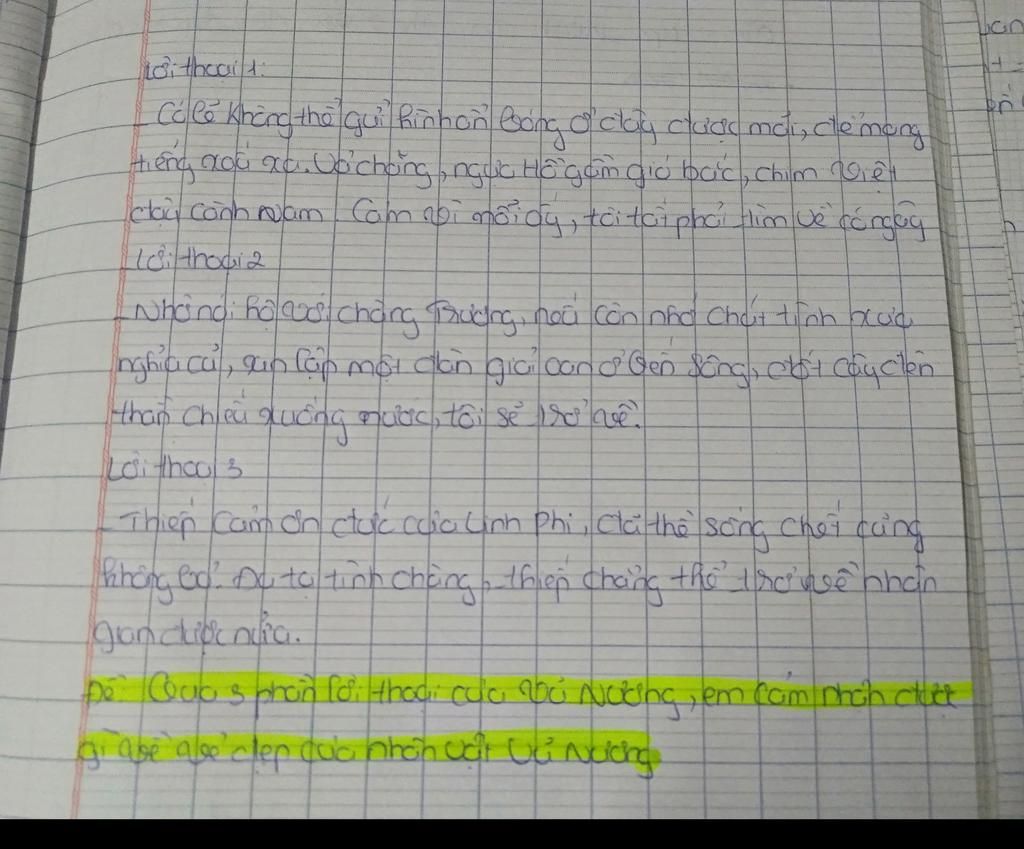 Lời thoại 1:
- Có lẽ không thể gửi hình ẩn bóng ở đây được mãi, để mang
tiếng xấu xa. Vả chăng, ngựa Hồ gầm gió bắc, chim Việt
đậu cành nam. Cảm vì nỗi ấy, tôi tất phải tìm về có ngày
Lời thoại 2
- Nhờ nói hộ với chàng Trương, nếu còn nhớ chút tình xưa
nghĩa cũ, xin lập một đàn giải oan ở bến sông, đốt cây đèn
thần chiếu xuống nước, tôi sẽ trở về.
Lời thoại 3
- Thiếp cảm ơn đức của Linh Phi, đã thề sống chết cũng
không bỏ. Đa tạ tình chàng, thiếp chẳng thể trở về nhân
gian được nữa.
Đề: Qua 3 phần lời thoại của Vũ Nương, em cảm nhận được
gì về vẻ đẹp của nhân vật Vũ Nương